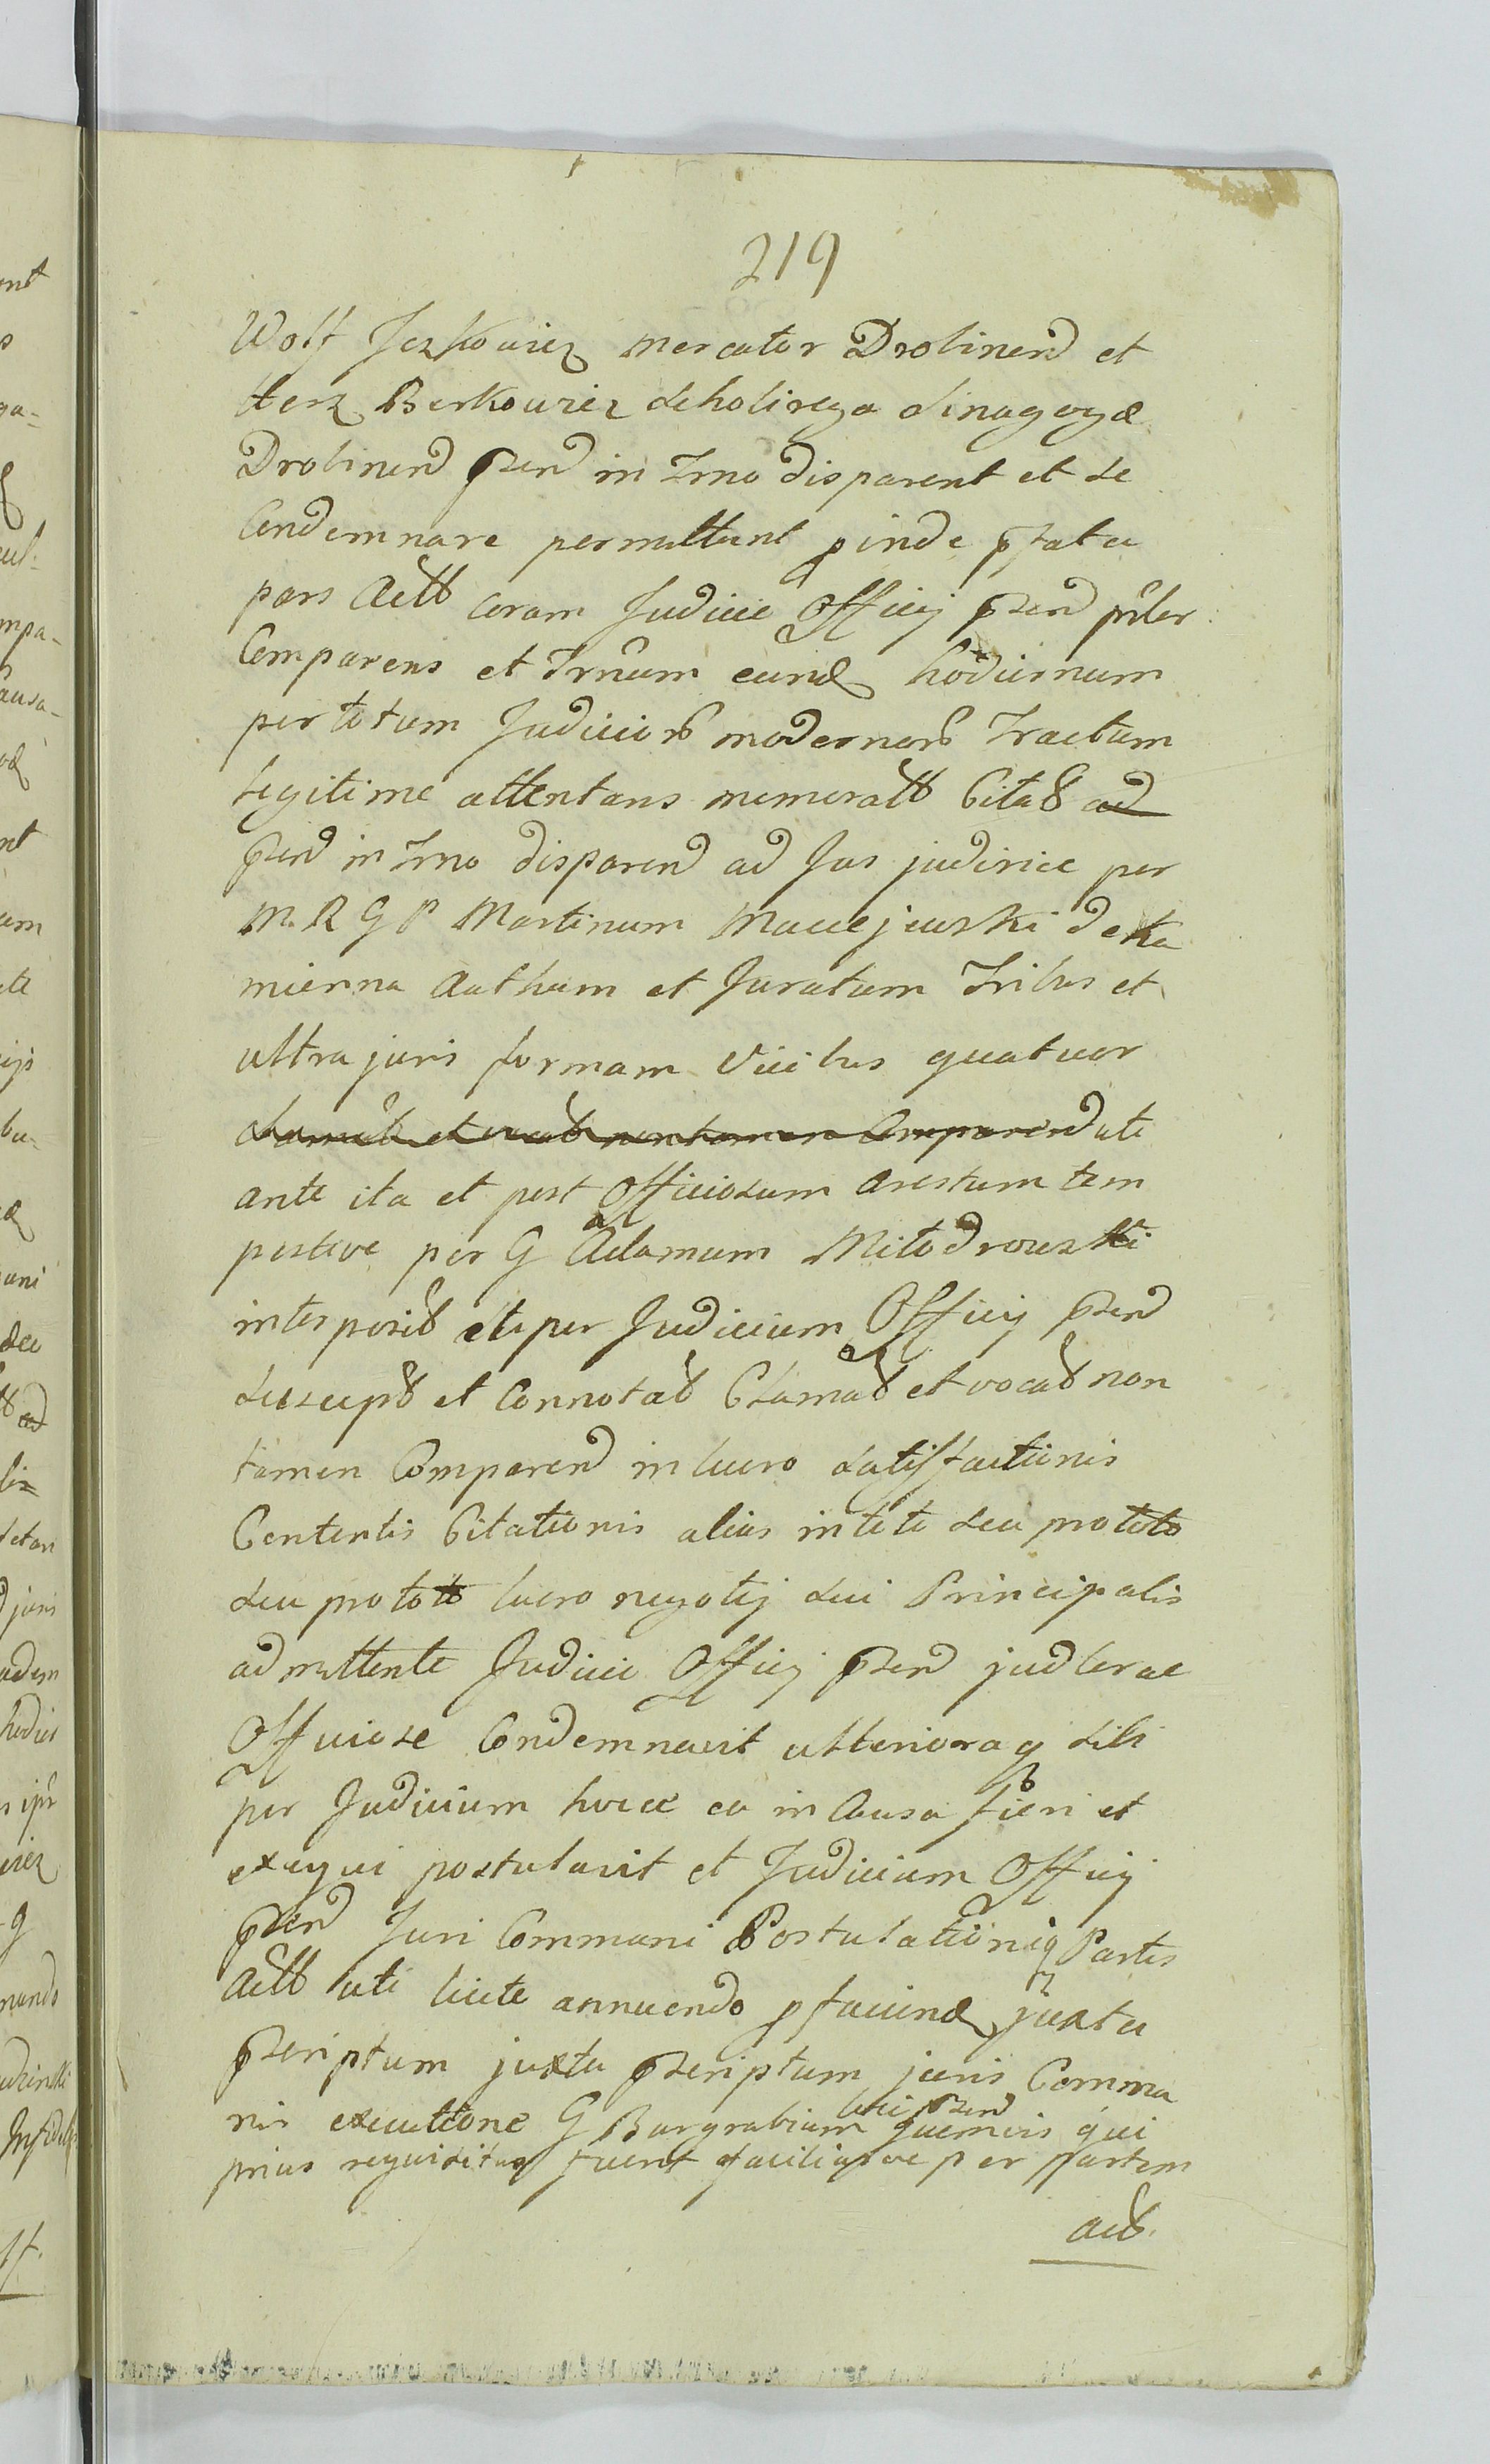 219
Wolf Jczkowicz mercator Drobinen et
Herz Berkowicz Scholirega Sinagogæ
Drobinen pren in Trno disparent et se
Condemnare permittunt pinde pfata
pars Actt coram Judicii Officij pren prler
Comparens et Trnum eund hodiernum
per totum Judicior modernor Tractum
legitime attentans memoratt Citat ad
pren in Trno disparen ad Jus judirice per
M. R G P Martinum Maciejewski de Ka
mienna Authum et Juratum Tribus et
ultra juris formam Vicibus quatuor
clamat et vocat non tamen Comparen uti
ante ita et post Officiosum Arestum tem
pestive per G Adamum Mitodrowski
interposit et per Judicium Officij pren
suscept et Connotat Clamat et vocat non
tamen Comparen in lucro satisfactionis
Contentis Citationis alias in toto seu pro toto
seu pro toto lucro negotij sui Principalis
admittente Judicii Officij pren judlerae
Officiose Condemnavit ulterioraq sibi
per Judicium hocce ea in Causa fieri et
exequi postulavit et Judicium Officij
pren Juri Communi Postulationiq Partis
Actt uti licite annuendo pfaciend juxta
prscriptum juxta prscriptum juris Commu
nis executione G Burgrabium loci pren quemvis qui
prius requisitus fuerit faciliusve per partem
act.